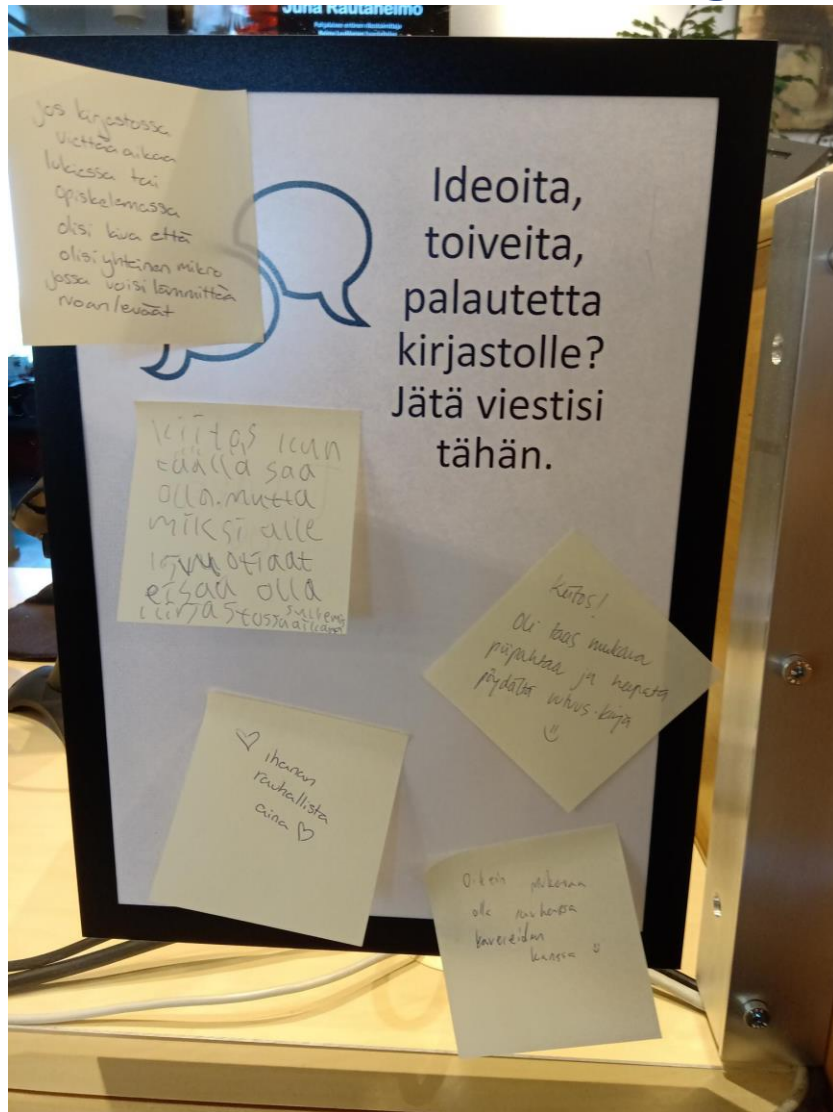 Juha Rautaheimo
jos kirjastossa
viettää aikaa
lukiessa tai
opiskelemassa
olisi kiva että
olisi yhteinen mikro
jossa voisi lämmittää
ruoan/eväät
Ideoita,
toiveita,
palautetta
kirjastolle?
Jätä viestisi
tähän.
kiitos kun
täällä saa
olla.mutta
miksi alle
eisaa olla
kirjastossa
Kiitos!
Oli taas mukava
piipahtaa ja napata
pöydältä uutuus-kirja
♡ ihanan
rauhallista
aina ♡
Oikein mukavaa
olla rauhassa
kavereiden
kanssa